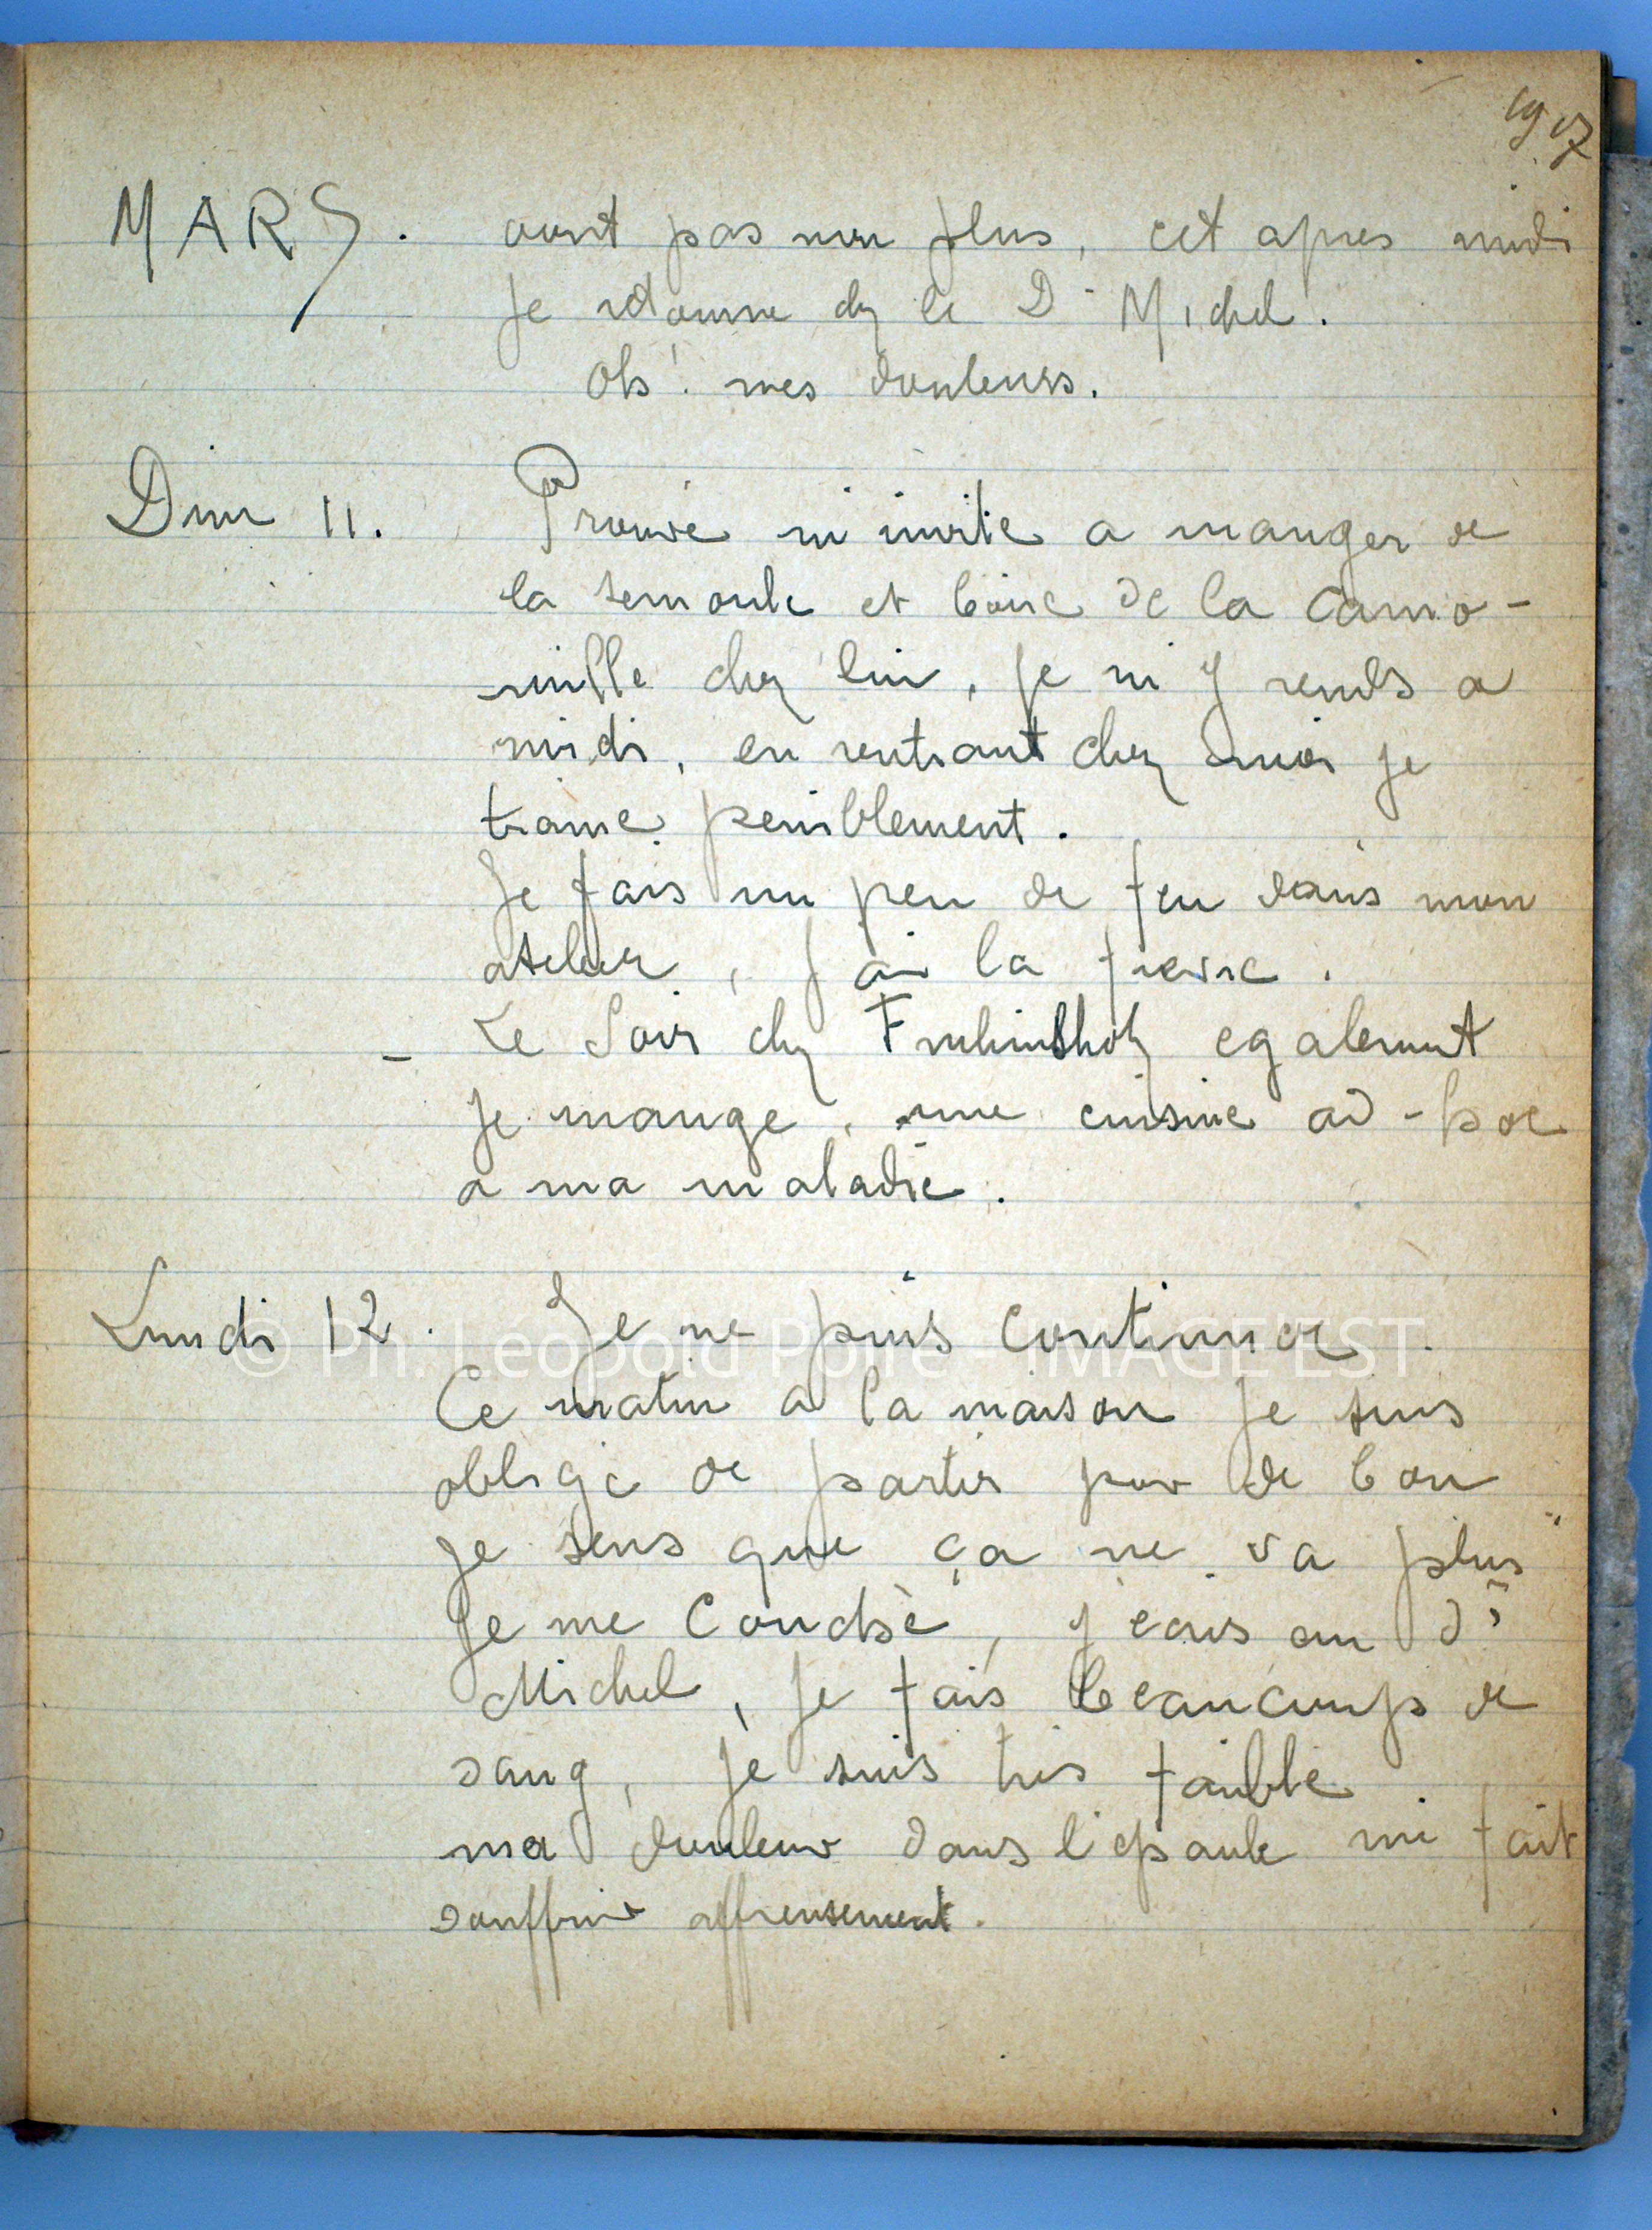 1917
MARS. vont pas non plus, cet apres midi
je retourne chez le Dr Michel.
Oh! mes douleurs.
Dim 11. Prouvé m'invite a manger de
la semoule et boire de la camo-
mille chez lui, je m'y rends a
midi, en rentrant chez moi je
traine peniblement.
Je fais un peu de feu dans mon
atelier, j'ai la fievre.
- Le soir chez Fruhinsholz egalement
je mange, une cuisine ad-hoc
a ma maladie.
Lundi 12. Je ne puis continuer.
Ce matin a la maison je suis
obligé de partir pour de bon
je sens que ça ne va plus
Je me couche, j'ecris au Dr
Michel, je fais beaucoup de
sang, je suis tres faible.
ma douleur dans l'epaule me fait
souffrir affreusement.
© Ph. Léopold Poiré - IMAGE'EST